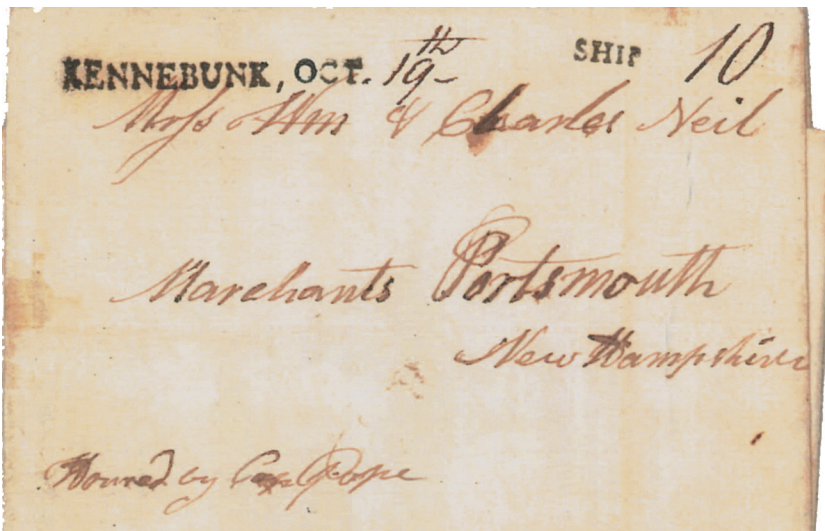 KENNEBUNK, OCT. 19th SHIP 10
Messs Wm & Charles Neil
Merchants Portsmouth
New Hampshire
Honred by Cap Pope